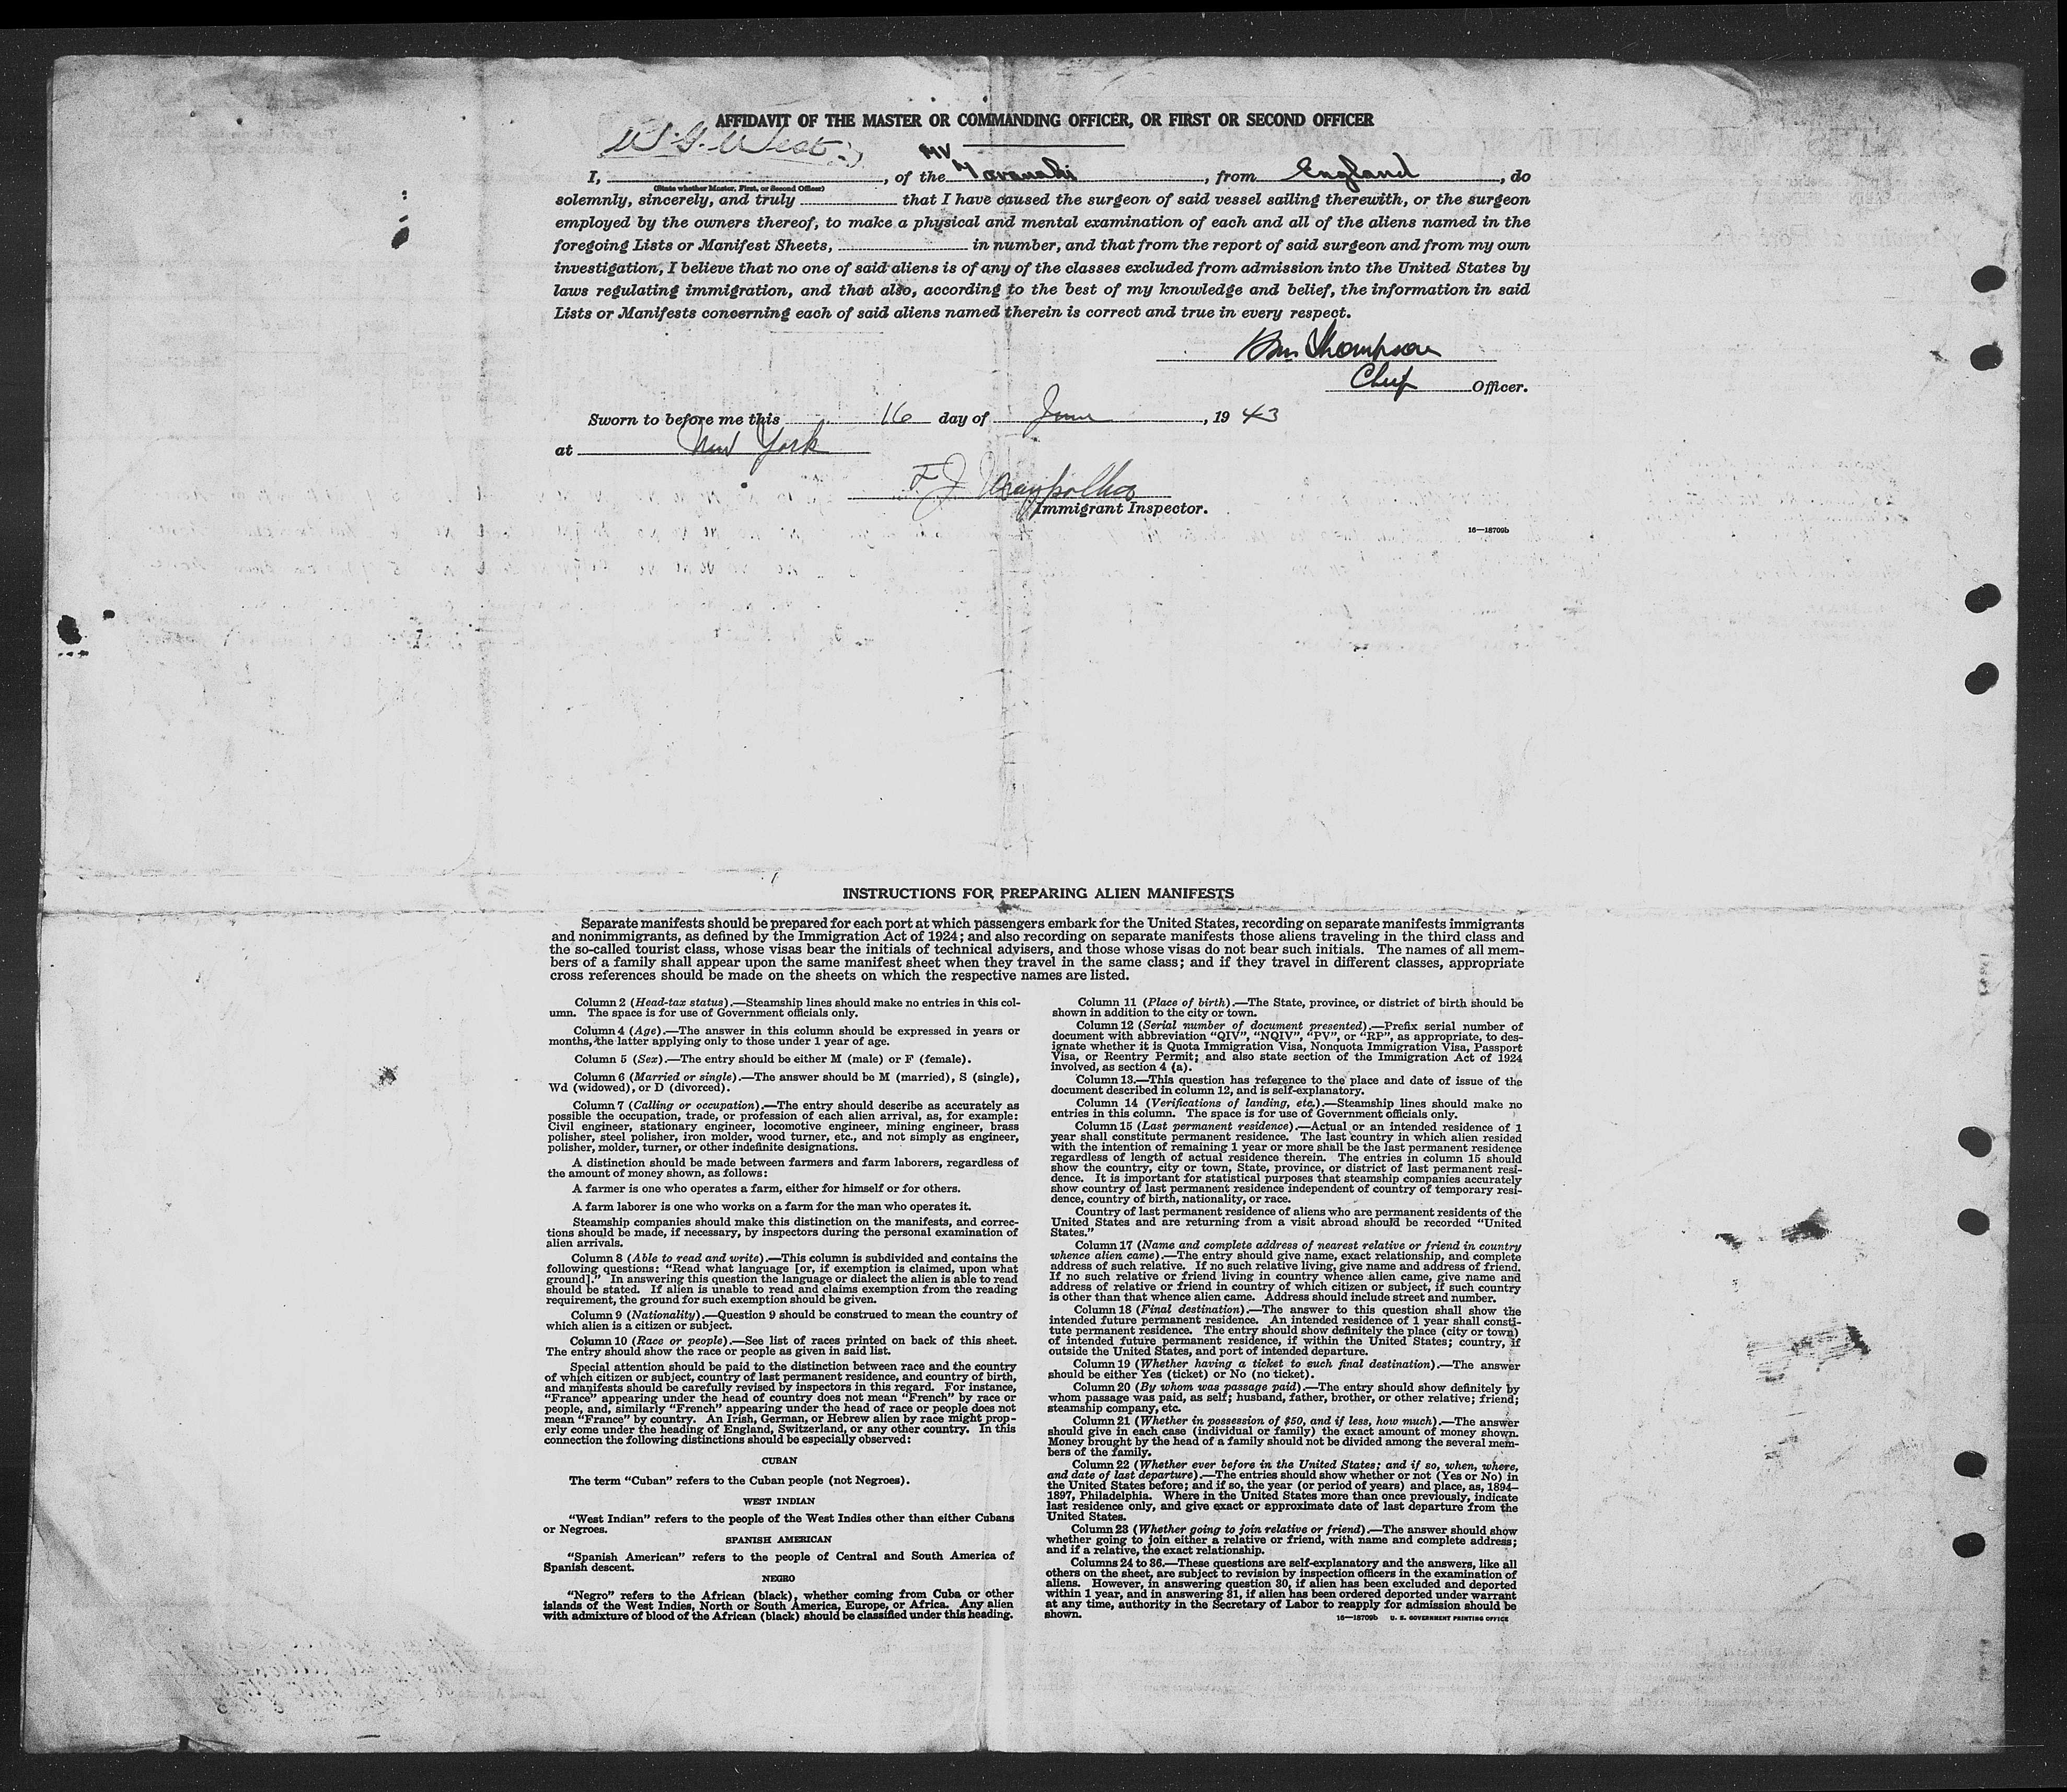 AFFIDAVIT OF THE MASTER OR COMMANDING OFFICER, OR FIRST OR SECOND OFFICER
W. G. West
MV
I, , of the Taranaki, from England, do
(State whether Master, First, or Second Officer)
solemnly, sincerely, and truly that I have caused the surgeon of said vessel sailing therewith, or the surgeon
employed by the owners thereof, to make a physical and mental examination of each and all of the aliens named in the
foregoing Lists or Manifest Sheets, in number, and that from the report of said surgeon and from my own
investigation, I believe that no one of said aliens is of any of the classes excluded from admission into the United States by
laws regulating immigration, and that also, according to the best of my knowledge and belief, the information in said
Lists or Manifests concerning each of said aliens named therein is correct and true in every respect.
Thompson
Chief Officer.
Sworn to before me this 16 day of June, 1943
at New York
F. J.
Immigrant Inspector.
16—18709b
INSTRUCTIONS FOR PREPARING ALIEN MANIFESTS
Separate manifests should be prepared for each port at which passengers embark for the United States, recording on separate manifests immigrants
and nonimmigrants, as defined by the Immigration Act of 1924; and also recording on separate manifests those aliens traveling in the third class and
the so-called tourist class, whose visas bear the initials of technical advisers, and those whose visas do not bear such initials. The names of all mem-
bers of a family shall appear upon the same manifest sheet when they travel in the same class; and if they travel in different classes, appropriate
cross references should be made on the sheets on which the respective names are listed.
Column 2 (Head-tax status).—Steamship lines should make no entries in this col-
umn. The space is for use of Government officials only.
Column 4 (Age).—The answer in this column should be expressed in years or
months, the latter applying only to those under 1 year of age.
Column 5 (Sex).—The entry should be either M (male) or F (female).
Column 6 (Married or single).—The answer should be M (married), S (single),
Wd (widowed), or D (divorced).
Column 7 (Calling or occupation).—The entry should describe as accurately as
possible the occupation, trade, or profession of each alien arrival, as, for example:
Civil engineer, stationary engineer, locomotive engineer, mining engineer, brass
polisher, steel polisher, iron molder, wood turner, etc., and not simply as engineer,
polisher, molder, turner, or other indefinite designations.
A distinction should be made between farmers and farm laborers, regardless of
the amount of money shown, as follows:
A farmer is one who operates a farm, either for himself or for others.
A farm laborer is one who works on a farm for the man who operates it.
Steamship companies should make this distinction on the manifests, and correc-
tions should be made, if necessary, by inspectors during the personal examination of
alien arrivals.
Column 8 (Able to read and write).—This column is subdivided and contains the
following questions: "Read what language [or, if exemption is claimed, upon what
ground]." In answering this question the language or dialect the alien is able to read
should be stated. If alien is unable to read and claims exemption from the reading
requirement, the ground for such exemption should be given.
Column 9 (Nationality).—Question 9 should be construed to mean the country of
which alien is a citizen or subject.
Column 10 (Race or people).—See list of races printed on back of this sheet.
The entry should show the race or people as given in said list.
Special attention should be paid to the distinction between race and the country
of which citizen or subject, country of last permanent residence, and country of birth,
and manifests should be carefully revised by inspectors in this regard. For instance,
"France" appearing under the head of country does not mean "French" by race or
people, and, similarly "French" appearing under the head of race or people does not
mean "France" by country. An Irish, German, or Hebrew alien by race might prop-
erly come under the heading of England, Switzerland, or any other country. In this
connection the following distinctions should be especially observed:
CUBAN
The term "Cuban" refers to the Cuban people (not Negroes).
WEST INDIAN
"West Indian" refers to the people of the West Indies other than either Cubans
or Negroes.
SPANISH AMERICAN
"Spanish American" refers to the people of Central and South America of
Spanish descent.
NEGRO
"Negro" refers to the African (black), whether coming from Cuba or other
islands of the West Indies, North or South America, Europe, or Africa. Any alien
with admixture of blood of the African (black) should be classified under this heading.
Column 11 (Place of birth).—The State, province, or district of birth should be
shown in addition to the city or town.
Column 12 (Serial number of document presented).—Prefix serial number of
document with abbreviation "QIV", "NQIV", "PV", or "RP", as appropriate, to des-
ignate whether it is Quota Immigration Visa, Nonquota Immigration Visa, Passport
Visa, or Reentry Permit; and also state section of the Immigration Act of 1924
involved, as section 4 (a).
Column 13.—This question has reference to the place and date of issue of the
document described in column 12, and is self-explanatory.
Column 14 (Verifications of landing, etc.).—Steamship lines should make no
entries in this column. The space is for use of Government officials only.
Column 15 (Last permanent residence).—Actual or an intended residence of 1
year shall constitute permanent residence. The last country in which alien resided
with the intention of remaining 1 year or more shall be the last permanent residence
regardless of length of actual residence therein. The entries in column 15 should
show the country, city or town, State, province, or district of last permanent resi-
dence. It is important for statistical purposes that steamship companies accurately
show country of last permanent residence independent of country of temporary resi-
dence, country of birth, nationality, or race.
Country of last permanent residence of aliens who are permanent residents of the
United States and are returning from a visit abroad should be recorded "United
States."
Column 17 (Name and complete address of nearest relative or friend in country
whence alien came).—The entry should give name, exact relationship, and complete
address of such relative. If no such relative living, give name and address of friend.
If no such relative or friend living in country whence alien came, give name and
address of relative or friend in country of which citizen or subject, if such country
is other than that whence alien came. Address should include street and number.
Column 18 (Final destination).—The answer to this question shall show the
intended future permanent residence. An intended residence of 1 year shall consti-
tute permanent residence. The entry should show definitely the place (city or town)
of intended future permanent residence, if within the United States; country, if
outside the United States, and port of intended departure.
Column 19 (Whether having a ticket to such final destination).—The answer
should be either Yes (ticket) or No (no ticket).
Column 20 (By whom was passage paid).—The entry should show definitely by
whom passage was paid, as self; husband, father, brother, or other relative; friend;
steamship company, etc.
Column 21 (Whether in possession of $50, and if less, how much).—The answer
should give in each case (individual or family) the exact amount of money shown.
Money brought by the head of a family should not be divided among the several mem-
bers of the family.
Column 22 (Whether ever before in the United States; and if so, when, where,
and date of last departure).—The entries should show whether or not (Yes or No) in
the United States before; and if so, the year (or period of years) and place, as, 1894–
1897, Philadelphia. Where in the United States more than once previously, indicate
last residence only, and give exact or approximate date of last departure from the
United States.
Column 23 (Whether going to join relative or friend).—The answer should show
whether going to join either a relative or friend, with name and complete address;
and if a relative, the exact relationship.
Columns 24 to 36.—These questions are self-explanatory and the answers, like all
others on the sheet, are subject to revision by inspection officers in the examination of
aliens. However, in answering question 30, if alien has been excluded and deported
within 1 year, and in answering 31, if alien has been ordered deported under warrant
at any time, authority in the Secretary of Labor to reapply for admission should be
shown.
16—18709b U. S. GOVERNMENT PRINTING OFFICE